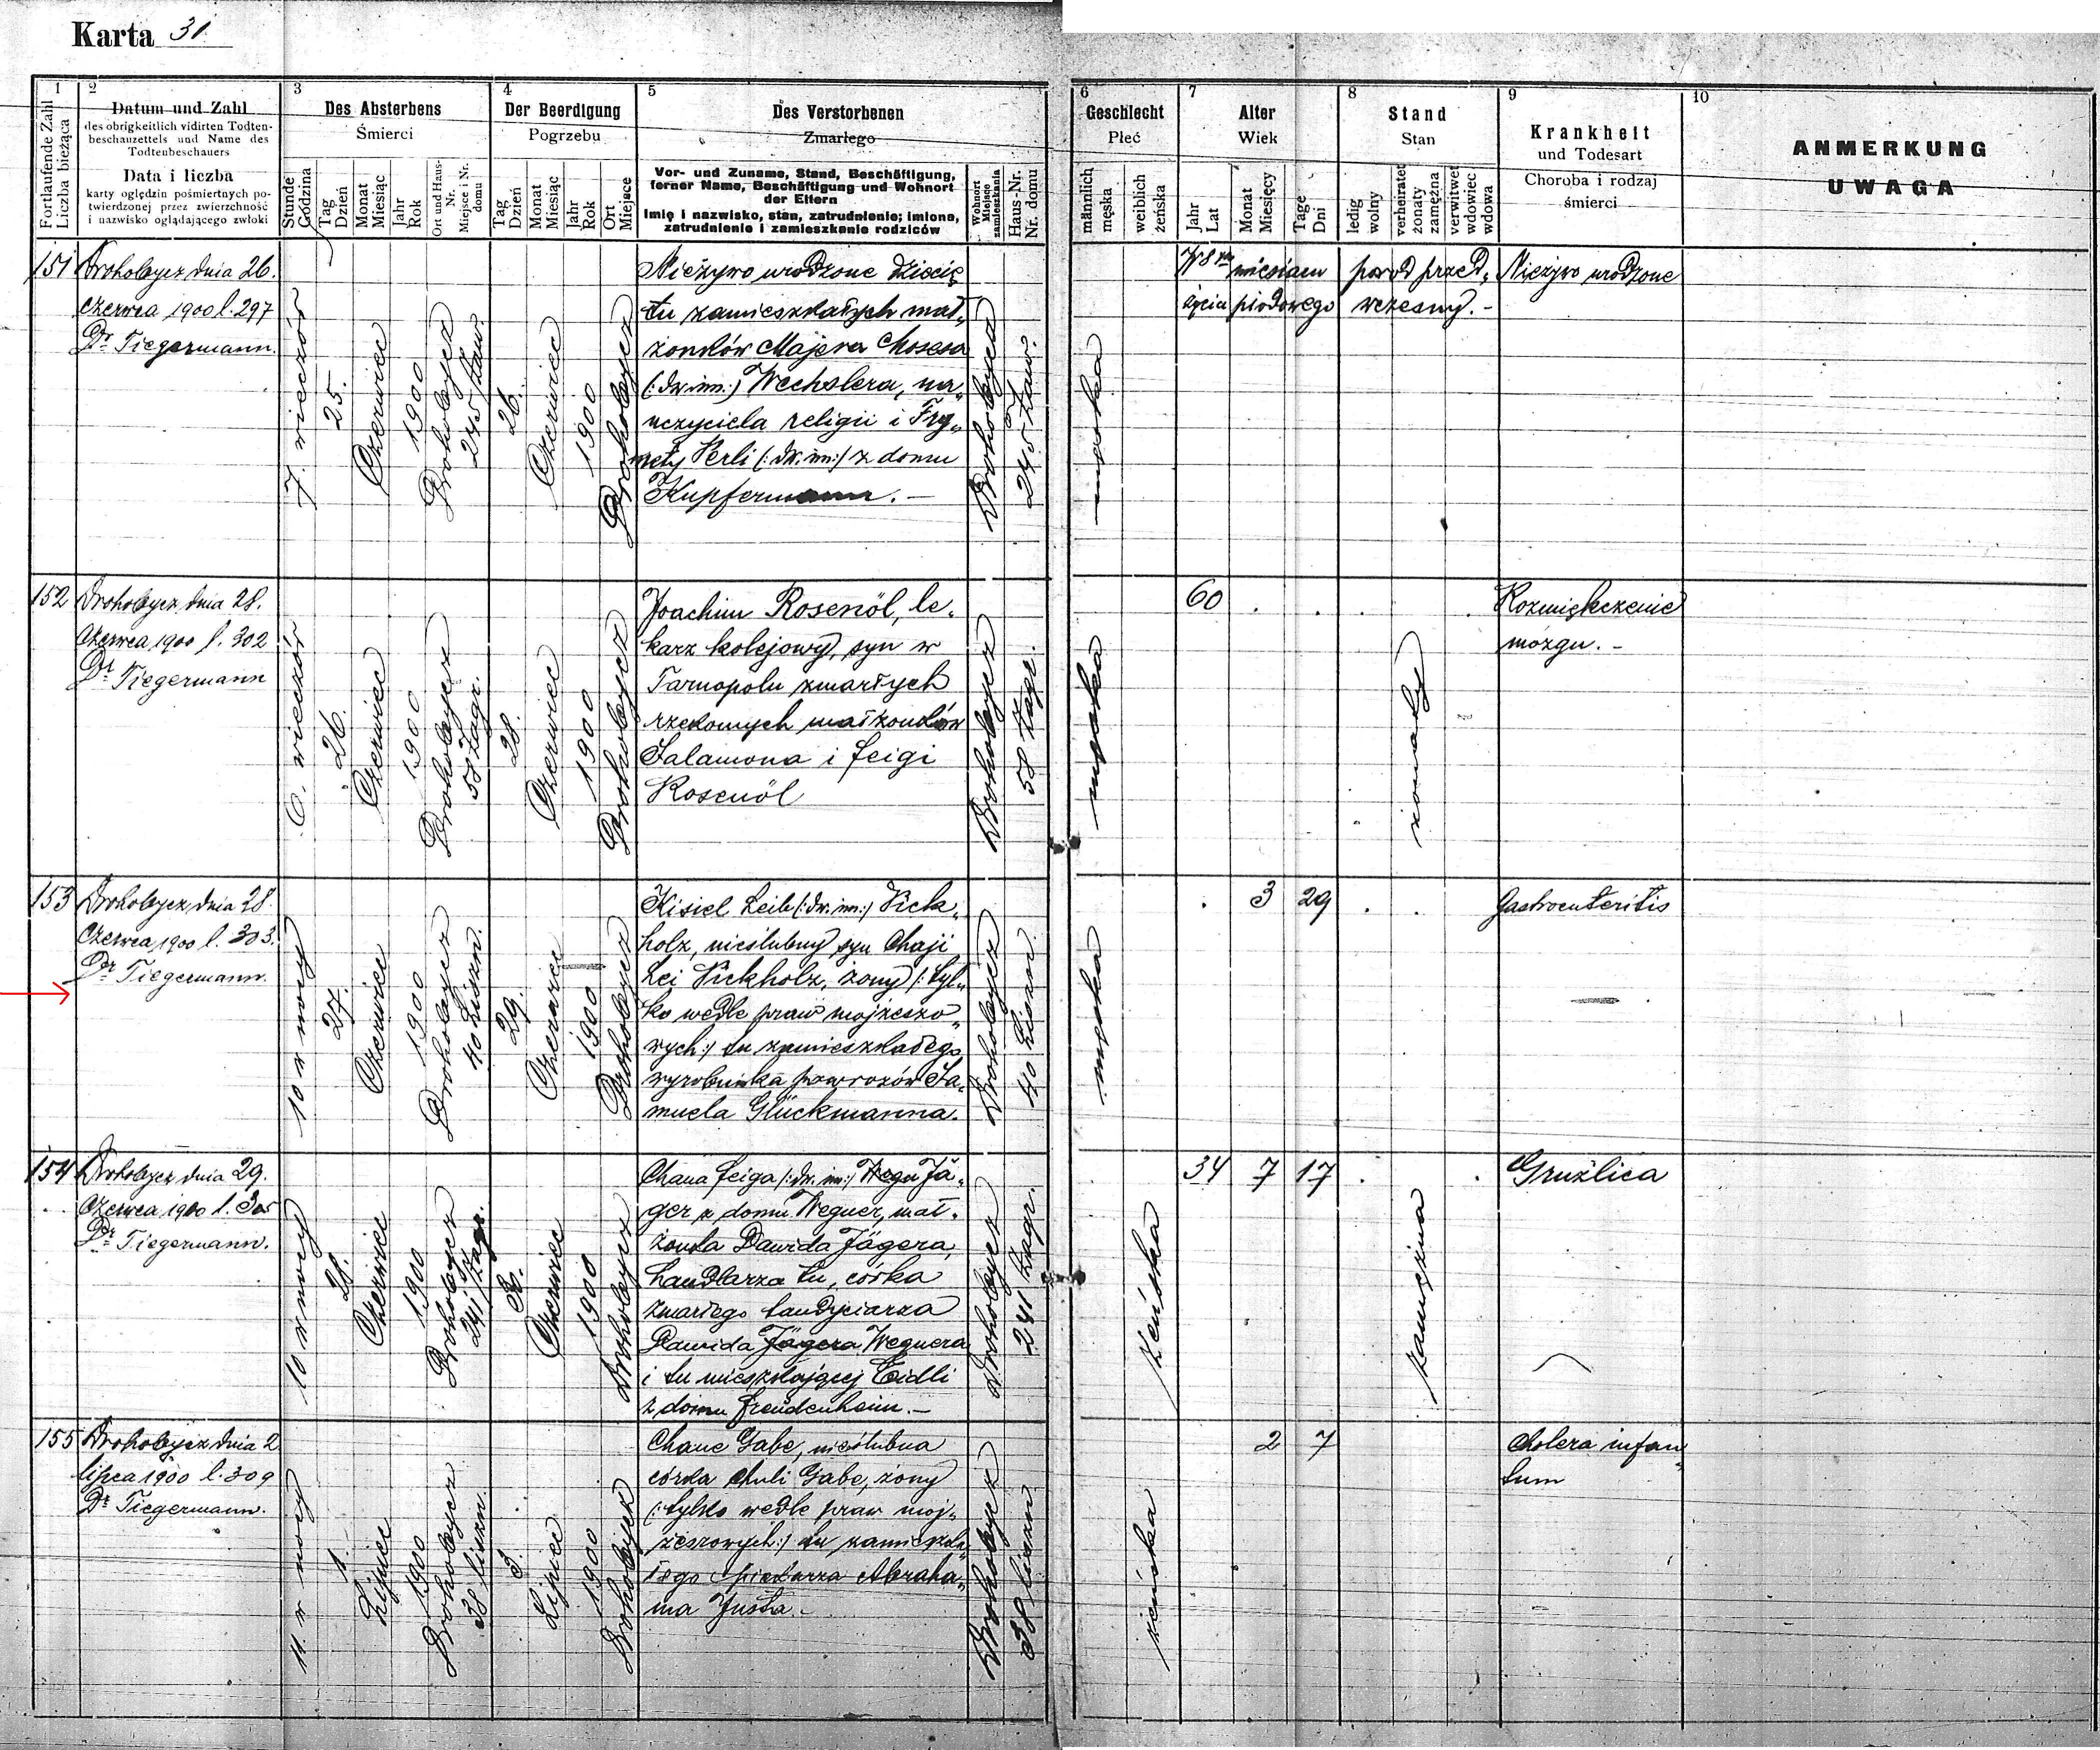 Karta 31.
1
Fortlaufende Zahl
Liczba bieżąca
2
Datum und Zahl
des obrigkeitlich vidirten Todten-
beschauzettels und Name des
Todtenbeschauers
Data i liczba
karty oględzin pośmiertnych po-
twierdzonej przez zwierzchność
i nazwisko oglądającego zwłoki
3
Des Absterbens
Śmierci
Stunde
Godzina
Tag
Dzień
Monat
Miesiąc
Jahr
Rok
Ort und Haus-
Nr.
Miejsce i Nr.
domu
4
Der Beerdigung
Pogrzebu
Tag
Dzień
Monat
Miesiąc
Jahr
Rok
Ort
Miejsce
5
Des Verstorbenen
Zmarłego
Vor- und Zuname, Stand, Beschäftigung,
ferner Name, Beschäftigung und Wohnort
der Eltern
Imię i nazwisko, stan, zatrudnienie; imiona,
zatrudnienie i zamieszkanie rodziców
Wohnort
Miejsce
zamieszkania
Haus-Nr.
Nr. domu
6
Geschlecht
Płeć
männlich
męska
weiblich
żeńska
7
Alter
Wiek
Jahr
Lat
Monat
Miesięcy
Tage
Dni
8
Stand
Stan
ledig
wolny
verheiratet
żonaty
zamężna
verwitwet
wdowiec
wdowa
9
Krankheit
und Todesart
Choroba i rodzaj
śmierci
10
ANMERKUNG
UWAGA
151
Drohobycz dnia 26.
czerwca 1900 l. 297
Dr Tiegermann.
7. wieczór
25.
Czerwiec
1900
Drohobycz
245 Zaw.
26.
Czerwiec
1900
Drohobycz
Nieżywo urodzone dziecię
tu zamieszkałych mał„
żonków Majera Mosesa
(: dw. im :) Wechslera, na„
uczyciela religii i Fry„
mety Perli (: dw. im :) z domu
Kupfermann. –
Drohobycz
245 Zaw.
męska
W 8ym miesiącu
życia płodowego
poród przed„
wczesny. –
Nieżywo urodzone
152
Drohobycz dnia 28.
czerwca 1900 l. 302
Dr Tiegermann
6. wieczór
26.
Czerwiec
1900
Drohobycz
58 Zagr.
28.
Czerwiec
1900
Drohobycz
Joachim Rosenöl, le„
karz kolejowy, syn w
Tarnopolu zmarłych
rzekomych małżonków
Salamona i Feigi
Rosenöl
Drohobycz
58 Zagr.
męska
60
żonaty
Rozmiękczenie
mózgu. –
153
Drohobycz dnia 28.
czerwca 1900 l. 303.
Dr Tiegermann.
10 w nocy
27.
Czerwiec
1900
Drohobycz
40 Liszn.
29.
Czerwiec
1900
Drohobycz
Kisiel Leib (: dw. im :) Pick„
holz, nieślubny syn Chaji
Lei Pickholz, żony (: tyl„
ko wedle praw mojżeszo„
wych :) tu zamieszkałego
wyrobnika powrozów Sa„
muela Glückmanna.
Drohobycz
40 Liszn.
męska
3
29
Gastroenteritis
154
Drohobycz dnia 29.
czerwca 1900 l. 305
Dr Tiegermann.
10 w nocy
28.
Czerwiec
1900
Drohobycz
241 Zagr.
Czerwiec
1900
Drohobycz
Chana Feiga (: dw. im :) Jä„
ger z domu Wegner, mał„
żonka Dawida Jägera,
handlarza tu, córka
zmarłego tandyciarza
Dawida Jägera Wegnera
i tu mieszkającej Eidli
z domu Freudenheim. –
Drohobycz
241 Zagr.
żeńska
34
7
17
zamężna
Gruźlica
155
Drohobycz dnia 2
lipca 1900 l. 309
Dr Tiegermann.
11 w nocy
1.
Lipiec
1900
Drohobycz
38 Liszn.
3.
Lipiec
1900
Drohobycz
Chane Gabe, nieślubna
córka Chuli Gabe, żony
(: tylko wedle praw moj„
żeszowych :) tu zamieszka„
łego piekarza Abraha„
ma Justa. –
Drohobycz
38 Liszn
żeńska
2
7
Cholera infan„
tum